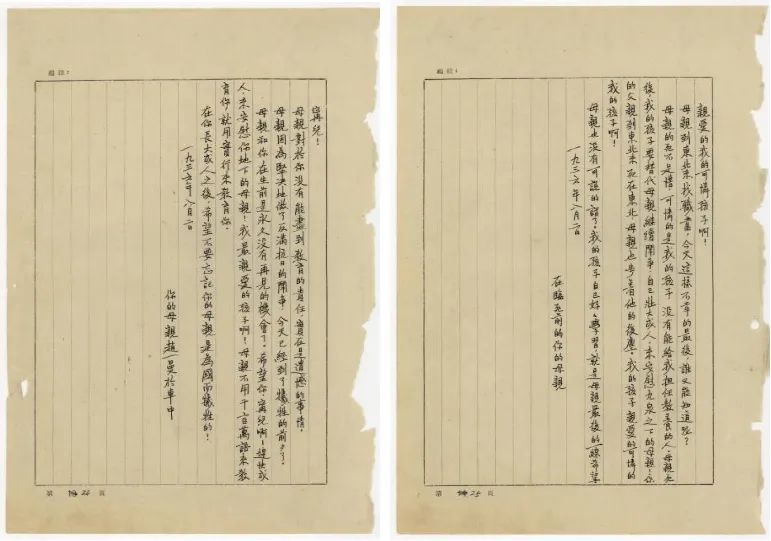 寧兒！
母親對於你沒有能盡到教育的責任，實在是遺憾的事情。
母親因為堅決地做了反滿抗日的鬥爭，今天已經到了犧牲的前夕了。
母親和你在生前是永久沒有再見的機會了。希望你，寧兒啊！趕快成
人，來安慰你地下的母親！我最親愛的孩子啊！母親不用千言萬語來教
育你，就用實行來教育你。
在你長大成人之後，希望不要忘記你的母親是為國而犧牲的！
一九三六年八月二日
你的母親趙一曼於車中
第 24 頁
親愛的我的可憐孩子啊！
母親到東北來找職業，今天這樣不幸的最後，誰又能知道呢？
母親的死不足惜，可憐的是我的孩子，沒有能給我担任教養的人。母親死
後，我的孩子要替代母親繼續鬥爭，自己壯大成人，來安慰九泉之下的母親！你
的父親到東北來死在東北，母親也步着他的後塵。我的孩子，親愛的可憐的
我的孩子啊！
母親也沒有可說的話了。我的孩子自己好好學習，就是母親最後的一線希望
一九三六年八月二日
在臨死前的你的母親
第 25 頁